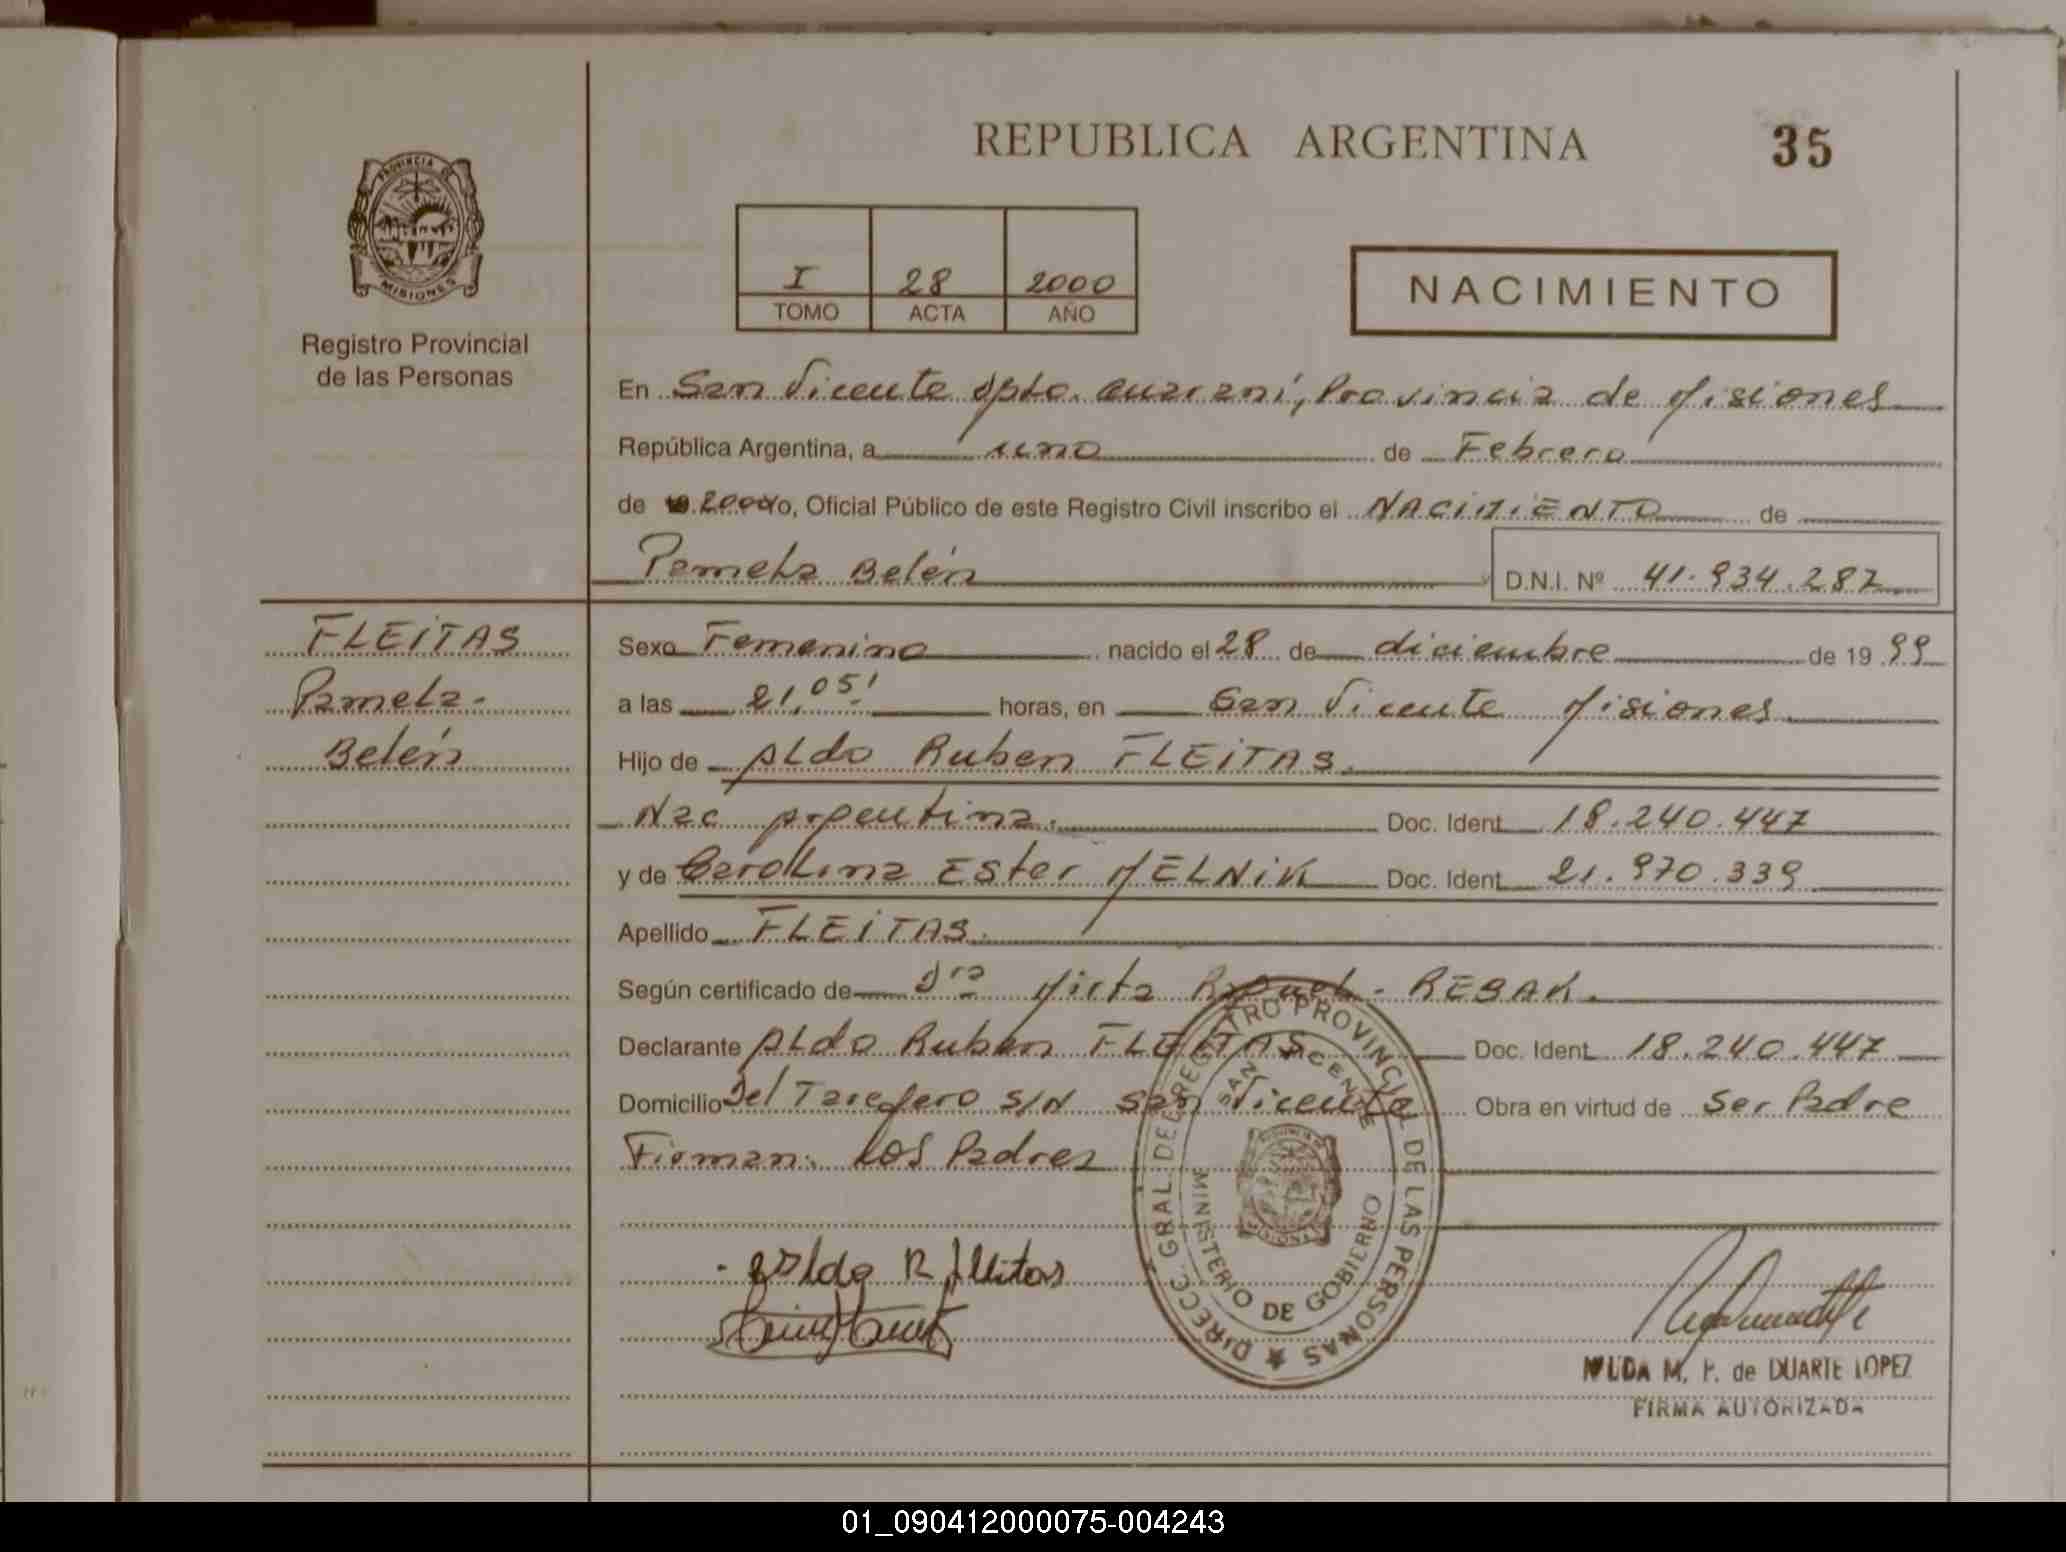 REPUBLICA ARGENTINA
35
PROVINCIA DE
MISIONES
Registro Provincial
de las Personas
I 28 2000
TOMO ACTA AÑO
NACIMIENTO
En San Vicente Dpto. Guaraní, Provincia de Misiones
República Argentina, a uno de Febrero
de 2000 yo, Oficial Público de este Registro Civil inscribo el NACIMIENTO de
Pamela Belén D.N.I. Nº 41.934.287
FLEITAS
Pamela-
Belén
Sexo Femenino nacido el 28 de diciembre de 1999
a las 21,05' horas, en San Vicente Misiones
Hijo de Aldo Ruben FLEITAS.
Nac Argentina. Doc. Ident. 18.240.447
y de Carolina Ester MELNIK Doc. Ident. 21.970.339
Apellido FLEITAS.
Según certificado de Dra Mirta Raquel - REBAK.
Declarante Aldo Ruben FLEITAS Doc. Ident. 18.240.447
Domicilio Del Tarefero S/N San Vicente Obra en virtud de Ser Padre
Firman. Los Padres
DIRECC. GRAL. DE REGISTRO PROVINCIAL DE LAS PERSONAS
SAN VICENTE
MINISTERIO DE GOBIERNO
Aldo R Fleitas
M. P. de DUARTE LOPEZ
FIRMA AUTORIZADA
01_090412000075-004243